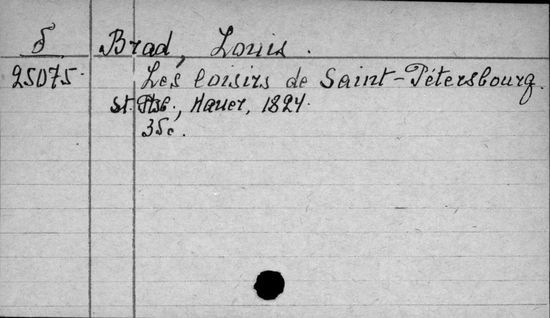 δ Brad, Louis.
25075. Les loisirs de Saint-Pétersbourg.
St. Ptsb., Hauer, 1824.
35c.